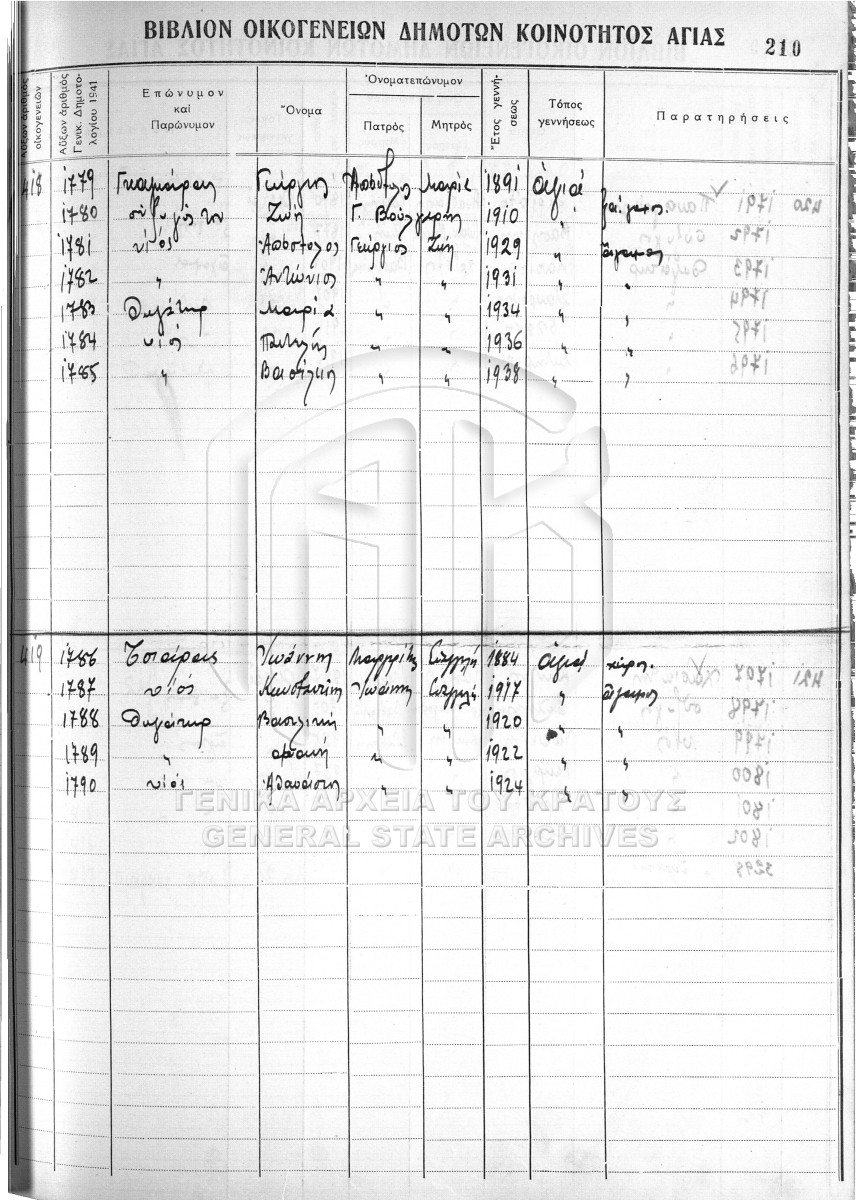 ΒΙΒΛΙΟΝ ΟΙΚΟΓΕΝΕΙΩΝ ΔΗΜΟΤΩΝ ΚΟΙΝΟΤΗΤΟΣ ΑΓΙΑΣ 210
Αὔξων ἀριθμὸς οἰκογενειῶν
Αὔξων ἀριθμὸς Γενικ. Δημοτολογίου 1941
Ἐπώνυμον καὶ Παρώνυμον
Ὄνομα
Ὀνοματεπώνυμον
Πατρὸς Μητρὸς
Ἔτος γεννήσεως
Τόπος γεννήσεως
Παρατηρήσεις
418 1779 Γεώργιος Ἀπόστολος Μαρία 1891 Ἁγιά
1780 σύζυγός του Ζωή Γ. 1910 "
1781 υἱός Ἀπόστολος Γεώργιος Ζωή 1929 " ἄγαμος
1782 " Ἀντώνιος " " 1931 " "
1783 Θυγάτηρ Μαρία " " 1934 " "
1784 υἱός Παντελῆς " " 1936 " "
1785 " Βασίλης " " 1938 " "
419 1786 Ἰωάννης 1884 Ἁγιά χῆρ.
1787 υἱός Κωνσταντῖνος Ἰωάννης 1917 " ἄγαμος
1788 Θυγάτηρ Βασιλική " " 1920 " "
1789 " " " 1922 " "
1790 υἱός Ἀθανάσιος " " 1924 " "
ΓΕΝΙΚΑ ΑΡΧΕΙΑ ΤΟΥ ΚΡΑΤΟΥΣ
GENERAL STATE ARCHIVES